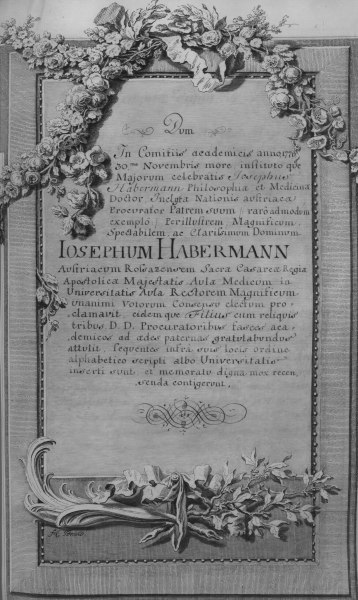 Dum
In Comitiis academicis anno
30 Novembris more, instituto que
Majorum celebratis Josephus
Habermann Philosophiæ et Medicinæ
Doctor Inclytæ Nationis austriacæ
Procurator Patrem suum, raro admodum
exemplo, Perillustrem Magnificum
Spectabilem ac Clarissimum Dominum
IOSEPHUM HABERMANN
Austriacum Sacræ Cæsareæ Regiæ
Apostolicæ Majestatis Aulæ Medicum in
Universitatis Aula Rectorem Magnificum
unanimi Votorum Consensu electum pro„
clamavit, eidem que Filius cum reliquis
tribus D. D. Procuratoribus fasces aca„
demicos ad ædes paternas gratulabundus
attulit, sequentes infra suis locis ordine
alphabetico scripti albo Universitatis
inserti sunt, et memoratu digna mox recen„
senda contigerunt.